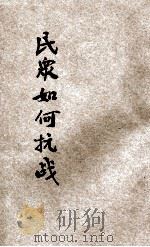 民衆如何抗战
研狗
mtoou.info